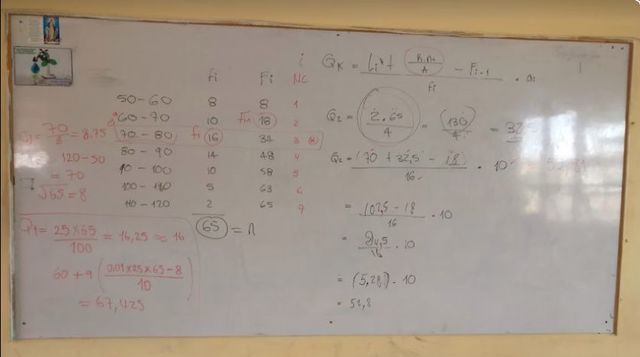 fi Fi i Nc
50-60 8 8 1
60-70 10 18 2
70-80 fi 16 34 3
80-90 14 48 4
90-100 10 58 5
100-110 5 63 6
110-120 2 65 7
65 = n
= 8.75
120-50
= 70
√65 = 8
P1 = 25x65 / 100 = 16,25 ≈ 16
60 + 9 (0,01x25x65-8 / 10)
= 67,425
QK = Li + K.n / A - Fi-1 / fi . ai
Q2 = 2.65 / 4 = (130 / 4) = 32,5
Q2 = (70 + 32,5 - 18) / 16 . 10
= 102,5 - 18 / 16 . 10
= 84,5 / 16 . 10
= (5,28) . 10
= 52,8